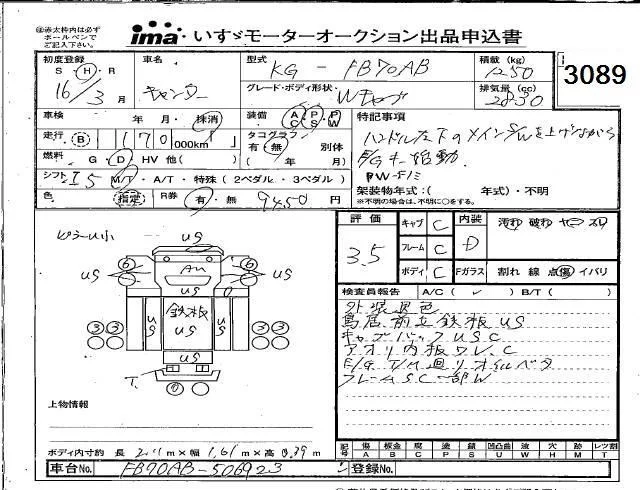 ㊟赤太枠内は必ず
ボールペンで
ご記入下さい。
ima・いすゞモーターオークション出品申込書
初度登録
S・H・R
16/3月
車名
キャンター
型式
KG-FB70AB
積載(kg)
1250
3089
グレード・ボディ形状
Wキャブ
排気量(cc)
2830
車検
年・月・抹消
装備 AC PS PW
特記事項
走行 B 170 000km
タコグラフ
有・無 別体
(年 月)
ハンドル左下のメインSWを上げながら
E/Gキー始動.
PW-F/S
燃料 G・D・HV 他( )
シフト I5 M/T・A/T・特殊(2ペダル・3ペダル)
架装物年式:( 年式)・不明
※不明の場合は、不明に○をする。
色 指定 R券 有・無 9450円
評価
3.5
キャブ C
フレーム C
ボディ C
内装 D
Fガラス
汚れ 破れ ヤニ スリ
割れ 線 点傷 イバリ
検査員報告 A/C( ) B/T( )
外装退色
鳥居.前立鉄板US
キャブバックUSC
アオリ内板ワレ.C
E/G T/M廻りオイルベタ
フレームSC一部W
ピラー小
US
6
6
US
AU
US
3 3
US
鉄板
US
US
3 3
US
T.
上物情報
ボディ内寸約 長 2.11m×幅 1.61m×高 0.39m
記号 傷A 板金B 腐C 塗P 錆S 凹凸曲U 波W 穴H 無M レツ割T
車台No. FB70AB-506923
登録No.